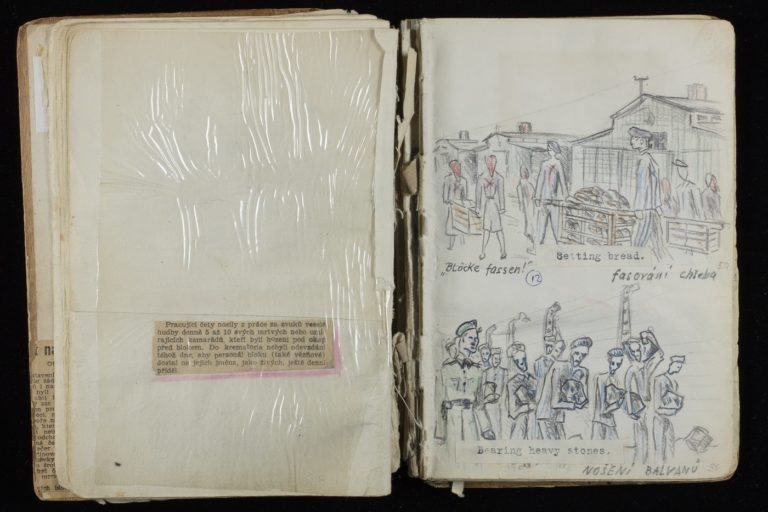 Pracující čety nosily z práce za zvuků veselé
hudby denně 5 až 10 svých mrtvých nebo umí
rajících kamarádů, kteří byli hozeni pod okap
před blokem. Do krematória nebyli odevzdáni
téhož dne, aby personál bloku (také vězňové)
dostal na jejich jména, jako živých, ještě denní
příděl.
Getting bread.
„Blöcke fassen!"
12
fasování chleba
Bearing heavy stones.
NOŠENÍ BALVANŮ